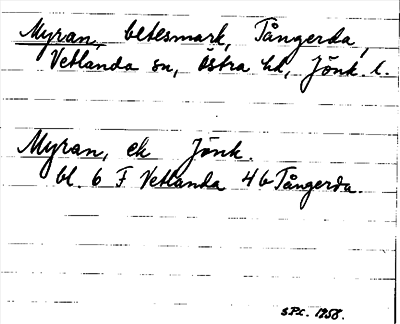 Myran, betesmark, Tångerda,
Vetlanda sn, Östra hd, Jönk. l.
Myran, ek Jönk.
bl. 6 F Vetlanda 4b Tångerda.
SPC. 1958.